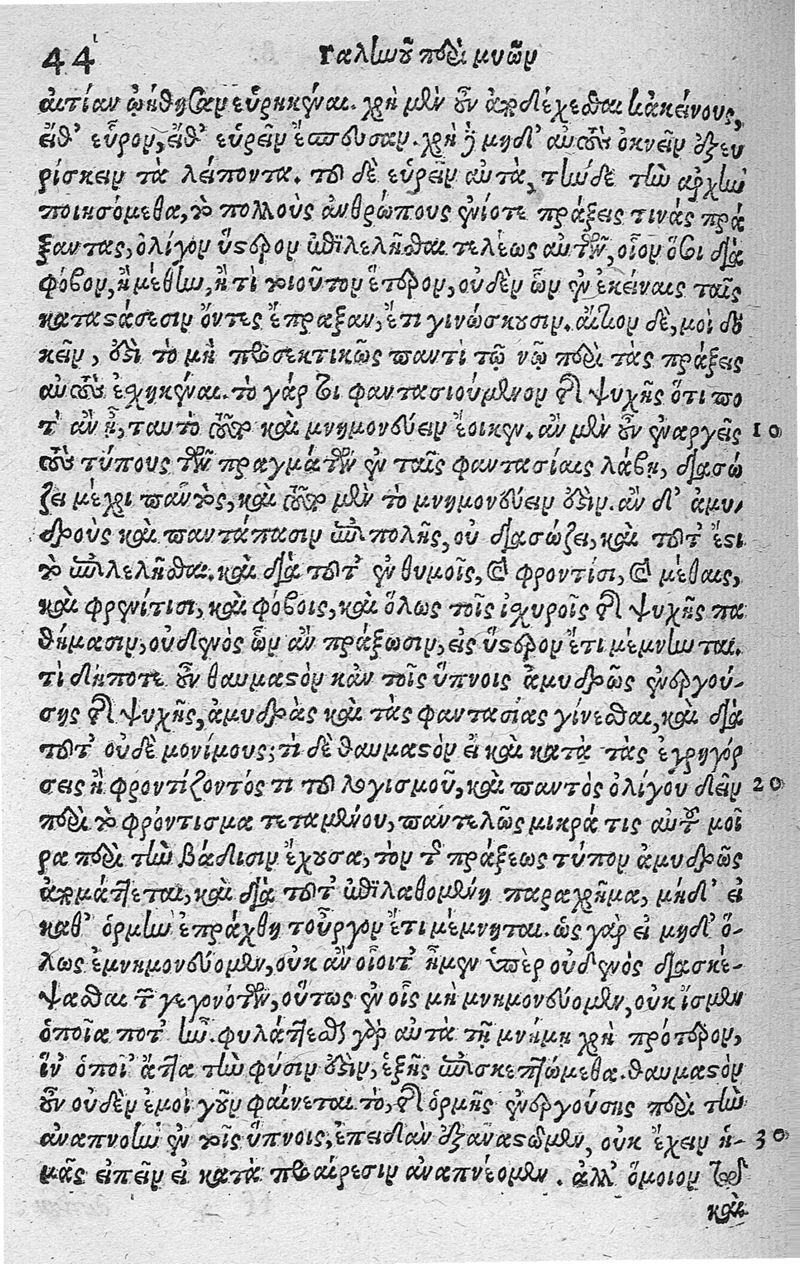 44 Γαληνοῦ περὶ μυῶν
αἰτίαν ᾠήθησαν εὑρηκέναι. χρὴ μὲν οὖν ἀποδέχεσθαι κἀκείνους,
εἴθ' εὗρον, εἴθ' εὑρεῖν ἔσπευσαν. χρὴ δὲ μηδ' αὐτοὺς ὀκνεῖν ἐξευ
ρίσκειν τὰ λείποντα. τοῦ δὲ εὑρεῖν αὐτὰ, τήνδε τὴν ἀρχὴν
ποιησόμεθα, τὸ πολλοὺς ἀνθρώπους ἐνίοτε πράξεις τινὰς πρά
ξαντας, ὀλίγον ὕστερον ἐπιλελῆσθαι τελέως αὐτῶν, οἷον ὅσοι διὰ
φόβον, ἢ μέθην, ἢ τὶ τοιοῦτον ἕτερον, οὐδὲν ὧν ἐν ἐκείναις ταῖς
καταστάσεσιν ὄντες ἔπραξαν, ἔτι γινώσκουσιν. αἴτιον δὲ, μοὶ δο
κεῖν, ἐστὶ τὸ μὴ προσεκτικῶς παντὶ τῷ νῷ περὶ τὰς πράξεις
αὐτοὺς ἐσχηκέναι. τὸ γάρ τοι φαντασιούμενον τῆς ψυχῆς ὅτι πο
τ' ἂν ᾖ, ταυτὸ τοῦτο καὶ μνημονεύειν ἔοικεν. ἂν μὲν οὖν ἐναργεῖς 10
τοὺς τύπους τῶν πραγμάτων ἐν ταῖς φαντασίαις λάβῃ, διασώ
ζει μέχρι παντὸς, καὶ τοῦτο μὲν τὸ μνημονεύειν ἐστίν. ἂν δ' ἀμυ-
δροὺς καὶ παντάπασιν ἐπιπολῆς, οὐ διασώζει, καὶ τοῦτ' ἔστι
τὸ ἐπιλελῆσθαι. καὶ διὰ τοῦτ' ἐν θυμοῖς, καὶ φροντίσι, καὶ μέθαις,
καὶ φρενίτισι, καὶ φόβοις, καὶ ὅλως τοῖς ἰσχυροῖς τῆς ψυχῆς πα
θήμασιν, οὐδενὸς ὧν ἂν πράξωσιν, εἰς ὕστερον ἔτι μέμνηνται.
τὶ δήποτε οὖν θαυμαστὸν κἀν τοῖς ὕπνοις ἀμυδρῶς ἐνεργού-
σης τῆς ψυχῆς, ἀμυδρὰς καὶ τὰς φαντασίας γίνεσθαι, καὶ διὰ
τοῦτ' οὐδὲ μονίμους; τὶ δὲ θαυμαστὸν εἰ καὶ κατὰ τὰς ἐγρηγόρ
σεις ἢ φροντίζοντός τι τοῦ λογισμοῦ, καὶ παντὸς ὀλίγου δεῖν 20
περὶ τὸ φρόντισμα τεταμένου, παντελῶς μικρά τις αὐτοῦ μοῖ
ρα περὶ τὴν βάδισιν ἔχουσα, τὸν τῆς πράξεως τύπον ἀμυδρῶς
ἀπομάττεται, καὶ διὰ τοῦτ' ἐπιλαθομένη παραχρῆμα, μήδ' εἰ
καθ' ὁρμὴν ἐπράχθη τοὖργον ἔτι μέμνηται. ὡς γὰρ εἰ μηδ' ὅ-
λως ἐμνημονεύομεν, οὐκ ἂν οἷοίτ' ἦμεν ὑπὲρ οὐδενὸς διασκέ-
ψασθαι τῶν γεγονότων, οὕτως ἐν οἷς μὴ μνημονεύομεν, οὐκ ἴσμεν
ὁποῖα ποτ' ἦν. φυλάττεσθαι γὰρ αὐτὰ τῇ μνήμῃ χρὴ πρότερον,
ἵν' ὁποῖ' ἄττα τὴν φύσιν ἐστὶν, ἑξῆς ἐπισκεπτώμεθα. θαυμαστὸν
οὖν οὐδὲν ἐμοὶ γοῦν φαίνεται τὸ, τῆς ὁρμῆς ἐνεργούσης περὶ τὴν
ἀναπνοὴν ἐν τοῖς ὕπνοις, ἐπειδὰν ἐξαναστῶμεν, οὐκ ἔχειν ἡ- 30
μᾶς εἰπεῖν εἰ κατὰ προαίρεσιν ἀναπνέομεν. ἀλλ' ὅμοιον τῷδε
καὶ